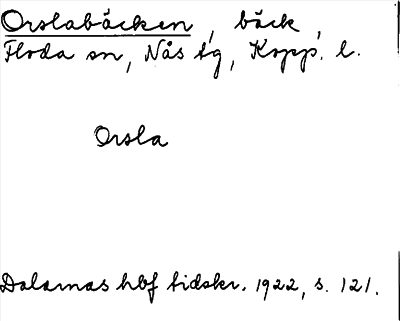 Orslabäcken, bäck,
Floda sn, Nås tg, Kopp. l.
Orsla
Dalarnas hbf tidskr. 1922, s. 121.